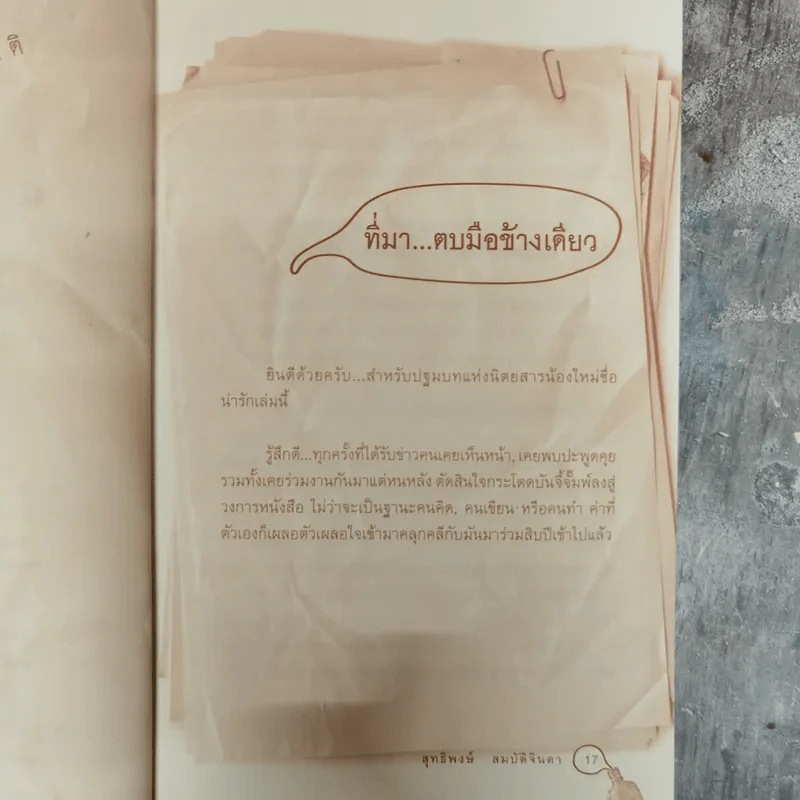 ติ
ที่มา...ตบมือข้างเดียว
ยินดีด้วยครับ...สำหรับปฐมบทแห่งนิตยสารน้องใหม่ชื่อ
น่ารักเล่มนี้
รู้สึกดี...ทุกครั้งที่ได้รับข่าวคนเคยเห็นหน้า, เคยพบปะพูดคุย
รวมทั้งเคยร่วมงานกันมาแต่หนหลัง ตัดสินใจกระโดดบันจี้จั๊มพ์ลงสู่
วงการหนังสือ ไม่ว่าจะเป็นฐานะคนคิด, คนเขียน หรือคนทำ ค่าที่
ตัวเองก็เผลอตัวเผลอใจเข้ามาคลุกคลีกับมันมาร่วมสิบปีเข้าไปแล้ว
สุทธิพงษ์ สมบัติจินดา 17